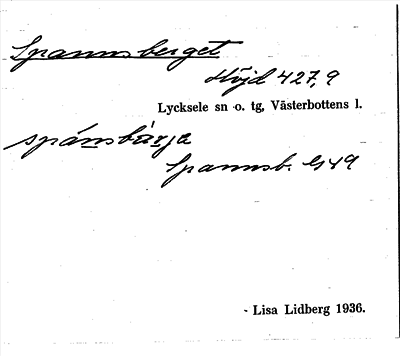 Spannsberget
Höjd 427,9
Lycksele sn o. tg, Västerbottens l.
spánsbàrja
Spannsb. G49
Lisa Lidberg 1936.